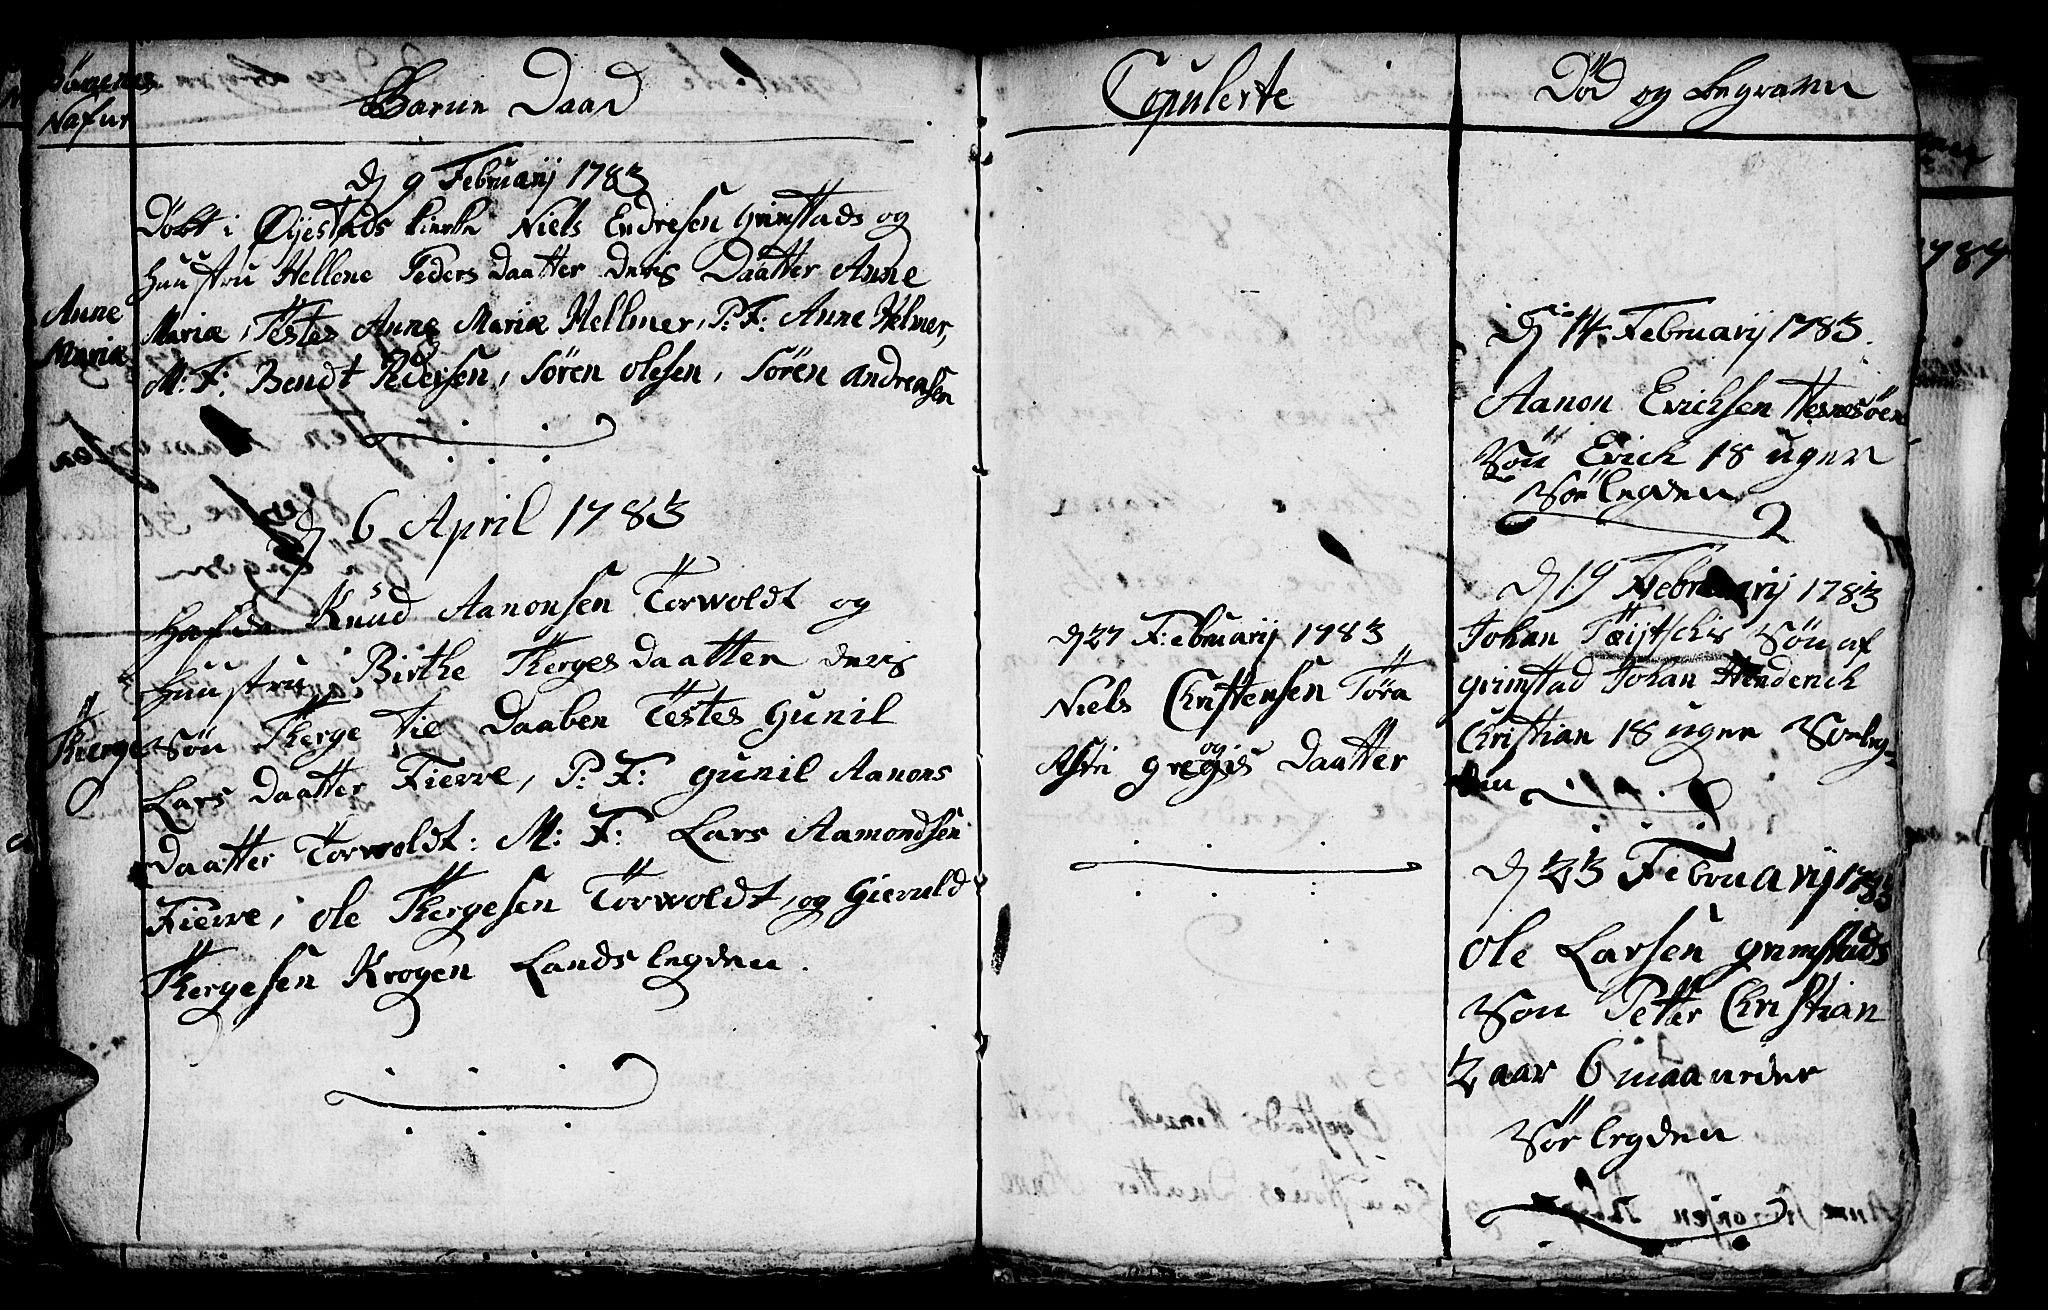 Børnenes
Nafne
Barne Daab
d 9 Februarij 1783
Døbt i Øijestads kierke Niels Endresen grimstads og
Huustru Hellene Peders daatter deris Daatter Anne
Anne
Mariæ
Mariæ, Testes Anne Mariæ Hellmer, P: F: Anne Helmer,
M: F: Bendt Pedersen, Sören Olesen, Sören andreasen
d 6 April 1783
Hafde Knud Aanonsen Torwoldt og
Huustru Birthe Therges daatter deris
Thierge
Søn Therge til Daaben Testes Gunil
Lars daatter Fierre, P: F: gunil Aanons
daatter Torwoldt: M: F: Lars Aamondsen
Fierre, Ole Thergesen Torwoldt, og Gieruld
Thergesen Krogen Landslegden.
Copulerte
d 27 Februarij 1783
Niels Christensen Töra
og
Astri gregis Daatter
Död og begravne
d 14. Februarij 1783.
Aanon Erichsen Hesnesøens
Søn Erich 18 uger
Sørlegden
2
d 19 Februarij 1783
Johan Søn af
grimstad Johan Henderich
Christian 18 uger Sørleg-
den
d 23 Februarij 1783
Ole Larsen grimstads
Søn Petter Christian
2 aar 6 maaneder
Sørlegden
1784